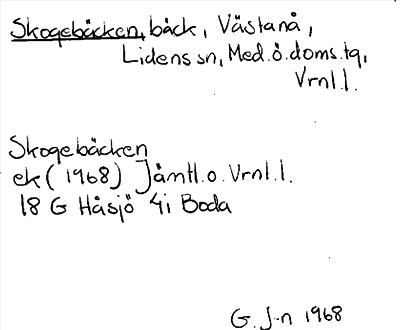 Skogebäcken, bäck, Västanå,
Lidens sn, Med.ö.doms.tg,
Vrnl.l.
Skogebäcken
ek (1968) Jämtl.o.Vrnl.l.
18 G Håsjö 4i Boda
G. J-n 1968